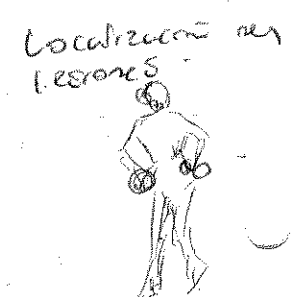 Localización
lesiones.